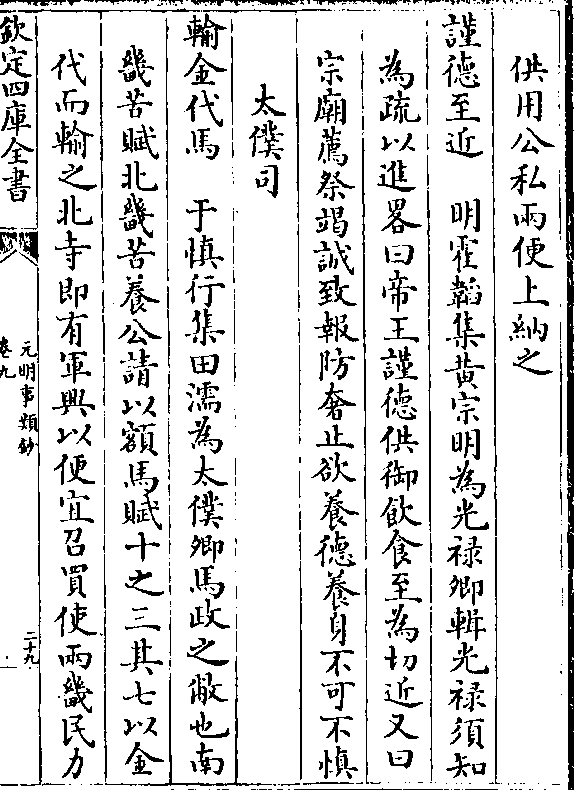 供用公私兩便上納之
謹德至近　明霍韜集黄宗明為光禄卿輯光禄須知
為疏以進畧曰帝王謹德供御飲食至為切近又曰
宗廟薦祭竭誠致報防奢止欲養德養身不可不慎
太僕司
輸金代馬　于慎行集田濡為太僕卿馬政之敝也南
畿苦賦北畿苦養公請以額馬賦十之三其七以金
代而輸之北寺即有軍興以便宜召買使兩畿民力
欽定四庫全書
元明事類鈔
卷九
二十九